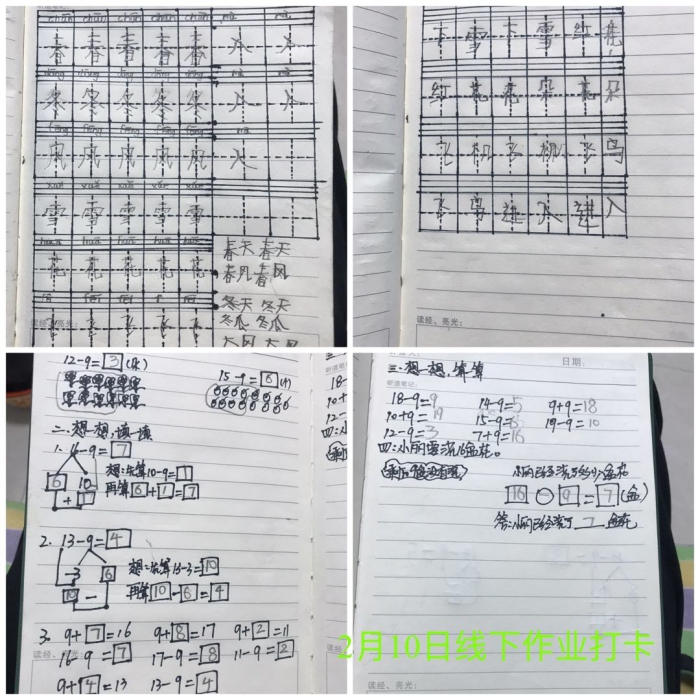 chūn chūn chūn chūn chūn
春 春 春 春 春 人 人
dōng dōng dōng dōng dōng
冬 冬 冬 冬 冬 人 人
fēng fēng fēng fēng fēng
风 风 风 风 风 入
xuě xuě xuě xuě xuě
雪 雪 雪 雪 雪
huā huā huā huā huā
花 花 花 花 花
飞 飞 飞 飞 飞
春天 春天
春风 春风
冬天 冬天
冬瓜 冬瓜
大风 大风
读经、亮光:
下 雪 下 雪 红 花
红 花 花 朵 朵
飞 机 飞 机 飞 鸟
飞 鸟 进 入 进 入
读经、亮光:
12-9=3(
15-9=6(
二.想一想,填一填
1. 16-9=7
6 10
想:先算10-9=1
再算6+1=7
2. 13-9=4
-3 6
想:先算13-3=10
再算10-6=4
3. 9+7=16 9+8=17 9+2=11
16-9=7 17-9=8 11-9=2
9+4=13 13-9=4
读经、亮光:
日期:
听道笔记:
三.想一想,算算
18-9=9 14-9=5 9+9=18
10+9=19 15-9=6 19-9=10
12-9=3 7+9=16
四:小丽要浇16盆花。
剩下9盆没有浇
小丽已经浇了多少盆花
16-9=7(盆)
答:小丽已经浇了7盆花
读经、亮光:
2月10日线下作业打卡